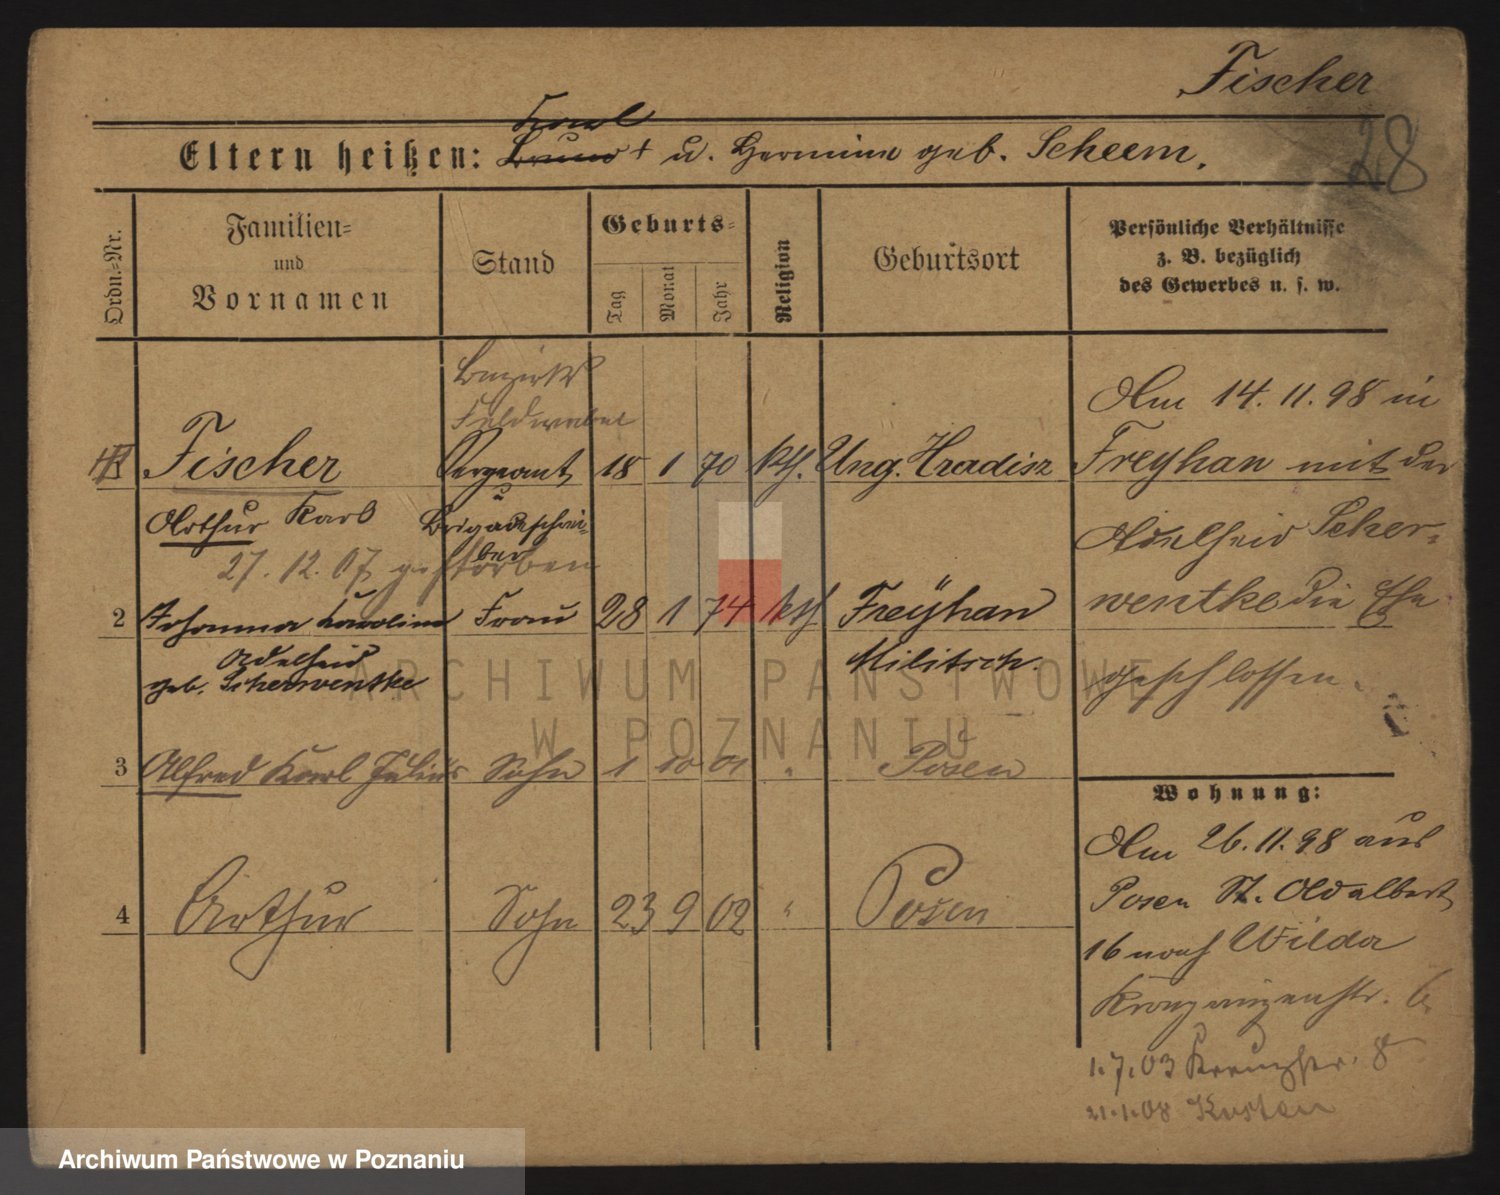 Fischer
28
Karl
Eltern heißen: Bruno † u. Hermine geb. Scheem.
Ordn.=Nr.
Familien=
und
Vornamen
Stand
Geburts=
Tag
Monat
Jahr
Religion
Geburtsort
Persönliche Verhältnisse
z. B. bezüglich
des Gewerbes u. s. w.
Bezirks
Feldwebel
1 Fischer Sergeant 18 1 70 kth. Ung. Hradisz
Arthur Karl Brigadeschrei-
ber
27.12.07 gestorben
2 Johanna Karoline Frau 28 1 74 kth Freyhan
Adelheid
geb. Scherwentke Militsch.
3 Alfred Karl Julius Sohn 1 10 01 " Posen
4 Arthur Sohn 23 9 02 " Posen
Am 14.11.98 in
Freyhan mit der
Adelheid Scher-
wentke die Ehe
geschlossen.
Wohnung:
Am 26.11.98 aus
Posen St. Adalbert
16 nach Wilda
Kronprinzenstr. 6.
1.7.03 Kreuzstr. 8
21.1.08 Kosten
ARCHIWUM PAŃSTWOWE
W POZNANIU
Archiwum Państwowe w Poznaniu